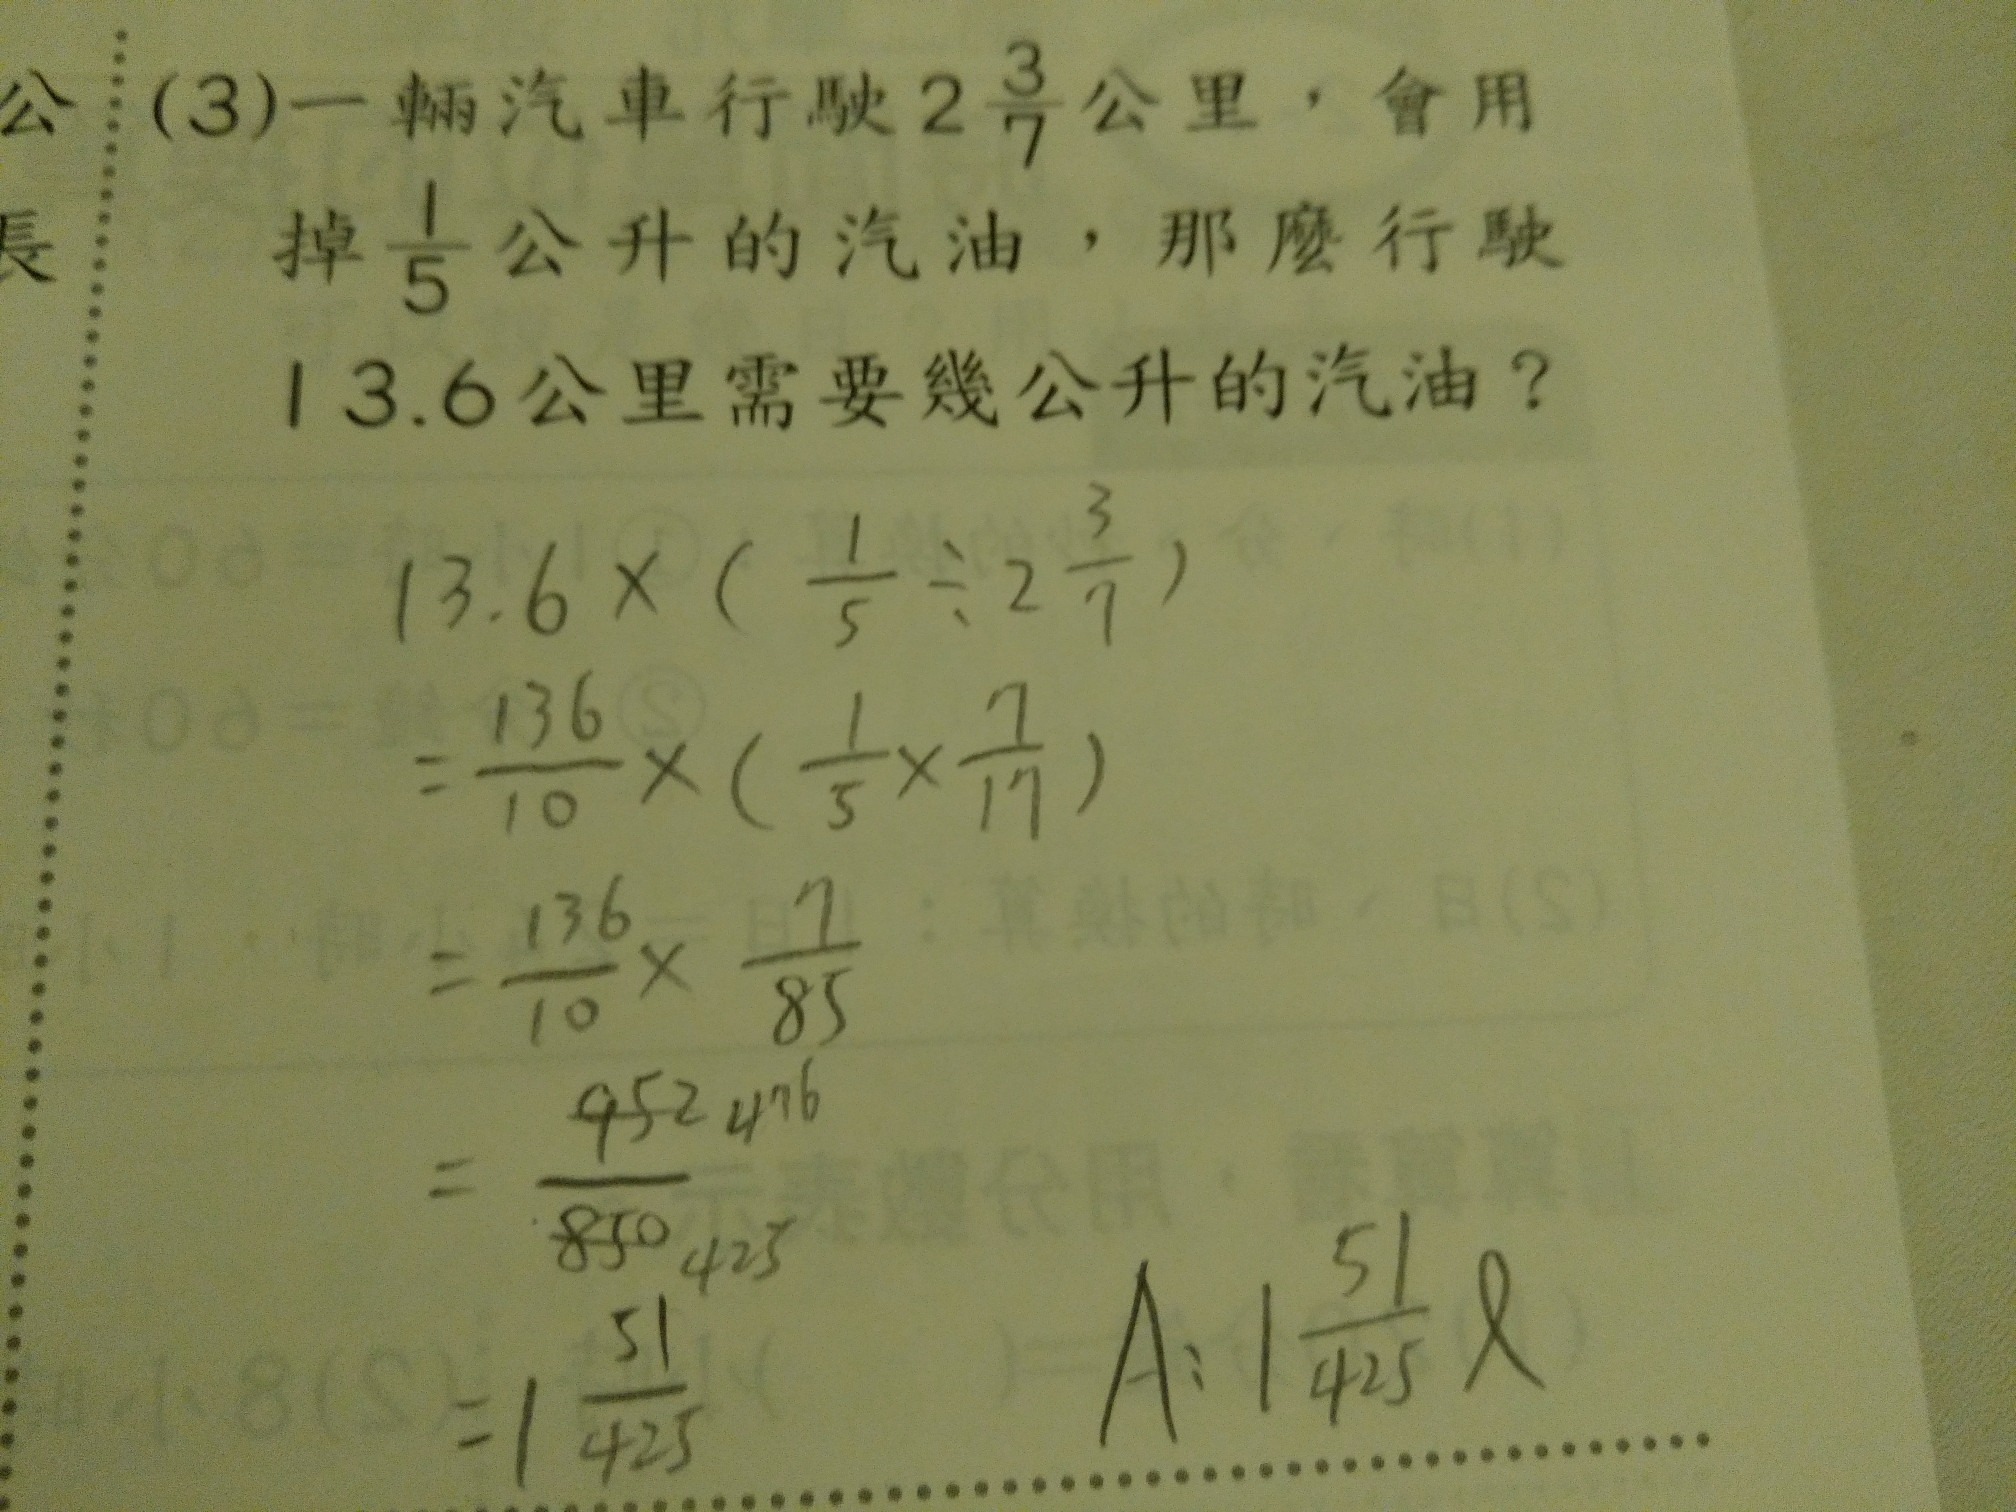 公
長
(3)一輛汽車行駛2 3/7公里，會用
掉1/5公升的汽油，那麼行駛
13.6公里需要幾公升的汽油？
13.6 × ( 1/5 ÷ 2 3/7 )
= 136/10 × ( 1/5 × 7/17 )
= 136/10 × 7/85
= 952/850 476/425
= 1 51/425
A: 1 51/425 ℓ